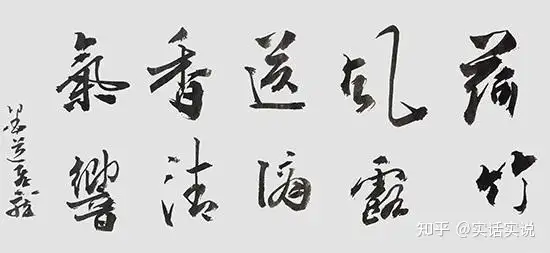 荷風送香氣
竹露滴清響
知乎 @实话实说